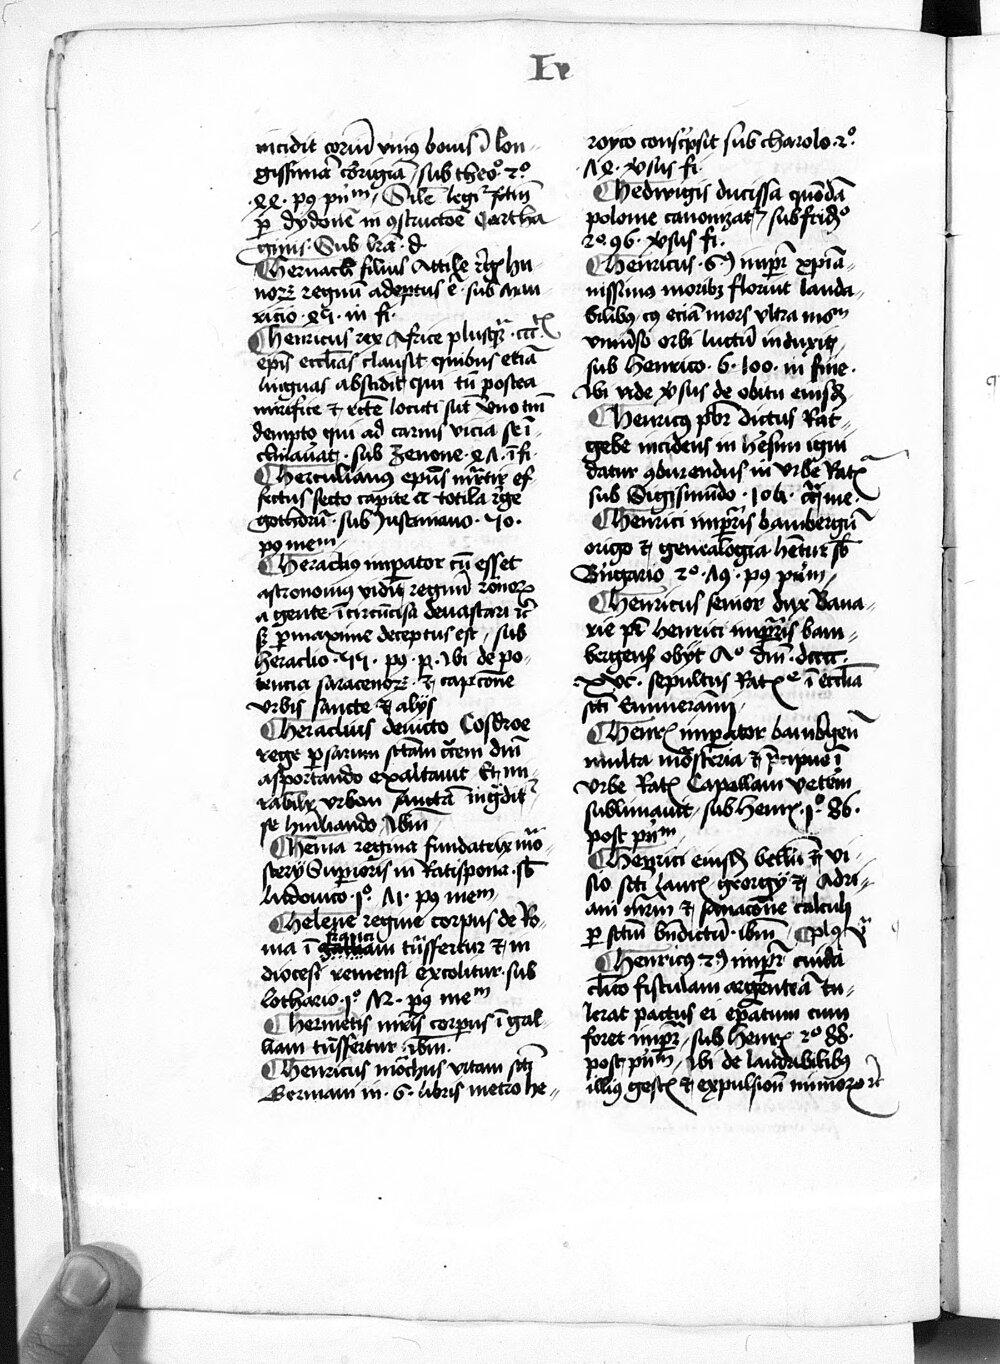 Lv
incidit coriū vniꝰ bouis ī lon⸗
gissimā corigiā / sub theoͦ 2ͦ
.XX. pꝰ prīᵐ / Sile legiͬ fctūm
ꝑ dydonē in ꝯstructōe Cartha
ginis. Sub lrā .d.
Hernach filius Attile rͤgꝭ hu⸗
noꝝ regnū adeptus ē. sub Mau⸗
ricio .XI. in fi.
Henricus rex Africe plusqͣ .cccͭ
epīs ecclīas clausit quibus etiā
linguas abscidit qui tn̄ postea
mirifice et rcte locuti sūt vno tm̄
dempto qui ad carnis vicia se ī⸗
clinauat. sub Zenone. XI. ī fi.
Herculianꝰ epūs martir ef⸗
fectus secto capite a totila rͤge
gothorū. sub Justiniano. 70.
pꝰ meᵐ
Heracliꝰ imꝑator cū esset
astronomiꝰ vidit regnū romoꝝ
a gente īcircūcisa deuastari
sꝫ ꝑmaxime deceptus est / sub
heraclio. 11. pꝰ p. Vbi de po⸗
tencia saracenoꝝ. et capcōne
vrbis sancte et alijs
Heraclius deuicto Cosdroe
rege ꝑsarum sctām crucem dnī
asportando exaltauit Et mi⸗
rabilꝝ vrbem sanctā ingditͬ
se huīliando. Ibīm
Hema regina fundatrix mo⸗
sterij Suꝑioris in Ratispona. sb
ludouico .1ͦ. 41. pꝰ meᵐ
Helene regine corpus de Ro⸗
ma ī francī tnsfertur et in
diocesi remensi excolitur. sub
lothario .1ͦ. 42. pꝰ meᵐ
Hermetis mris corpus ī gal⸗
liam tnsfertur. ibm.
Henricus mōchus vitam sctī
Germani in .6. libris metro he⸗
royco conscͥpsit sub charolo .2ͦ.
42. vsus fi.
Hedwigis ducissa quōdā
polonie canonizatͬ / sub fridͦ
2ͦ 96. vsus fi.
Henricus .6ꝰ impr xpiā⸗
nissimꝰ moribꝫ floruit lauda⸗
bilibꝰ cꝰ eciam mors vltra moᵐ
vniuso orbi luctū induxit /
sub henrico .6. 100. in fine.
Vbi vide vsus de obitu eiusdꝫ
Henricꝰ pbr dictus Rat⸗
gebe incidens in hesim igni
datur ꝯburendus in vrbe Ratꝭ
sub Sigismūdo .101. cͥme.
Henrici impris bambergēn
origo et genealogia hētur sb
Bulgario 2ͦ .49. pꝰ prīm /
Henricus senior dux Baua⸗
rie pr henrici impris bam⸗
bergensꝭ obijt Aͦ dnī .dcccc.
xvc. sepultus Ratꝭ ī ecclīa
sctī Emmerāmi
Henrꝭ imꝑator bambgēn
multa mosteria et prcipue ī
vrbe Ratꝭ Capellam veterem
sublimauit / sub henrꝭ .1ͦ. 86.
post prīᵐ
Henrici eiusdꝫ bellū et vi⸗
sio sctī laurꝭ georgij et Adri⸗
ani mrīm et sanacōne calculi
ꝑ sctum bndictū. ibm̄ / plꝰ
Henricꝰ 2ꝰ impr cuidā
clico fistulam argenteā tu⸗
lerat pactus ei epatum cum
foret impr / sub henrꝭ 2ͦ 88.
post prīᵐ / Vbi de laudabilibꝰ
illiꝰ gestꝭ et expulsione mimoꝝ